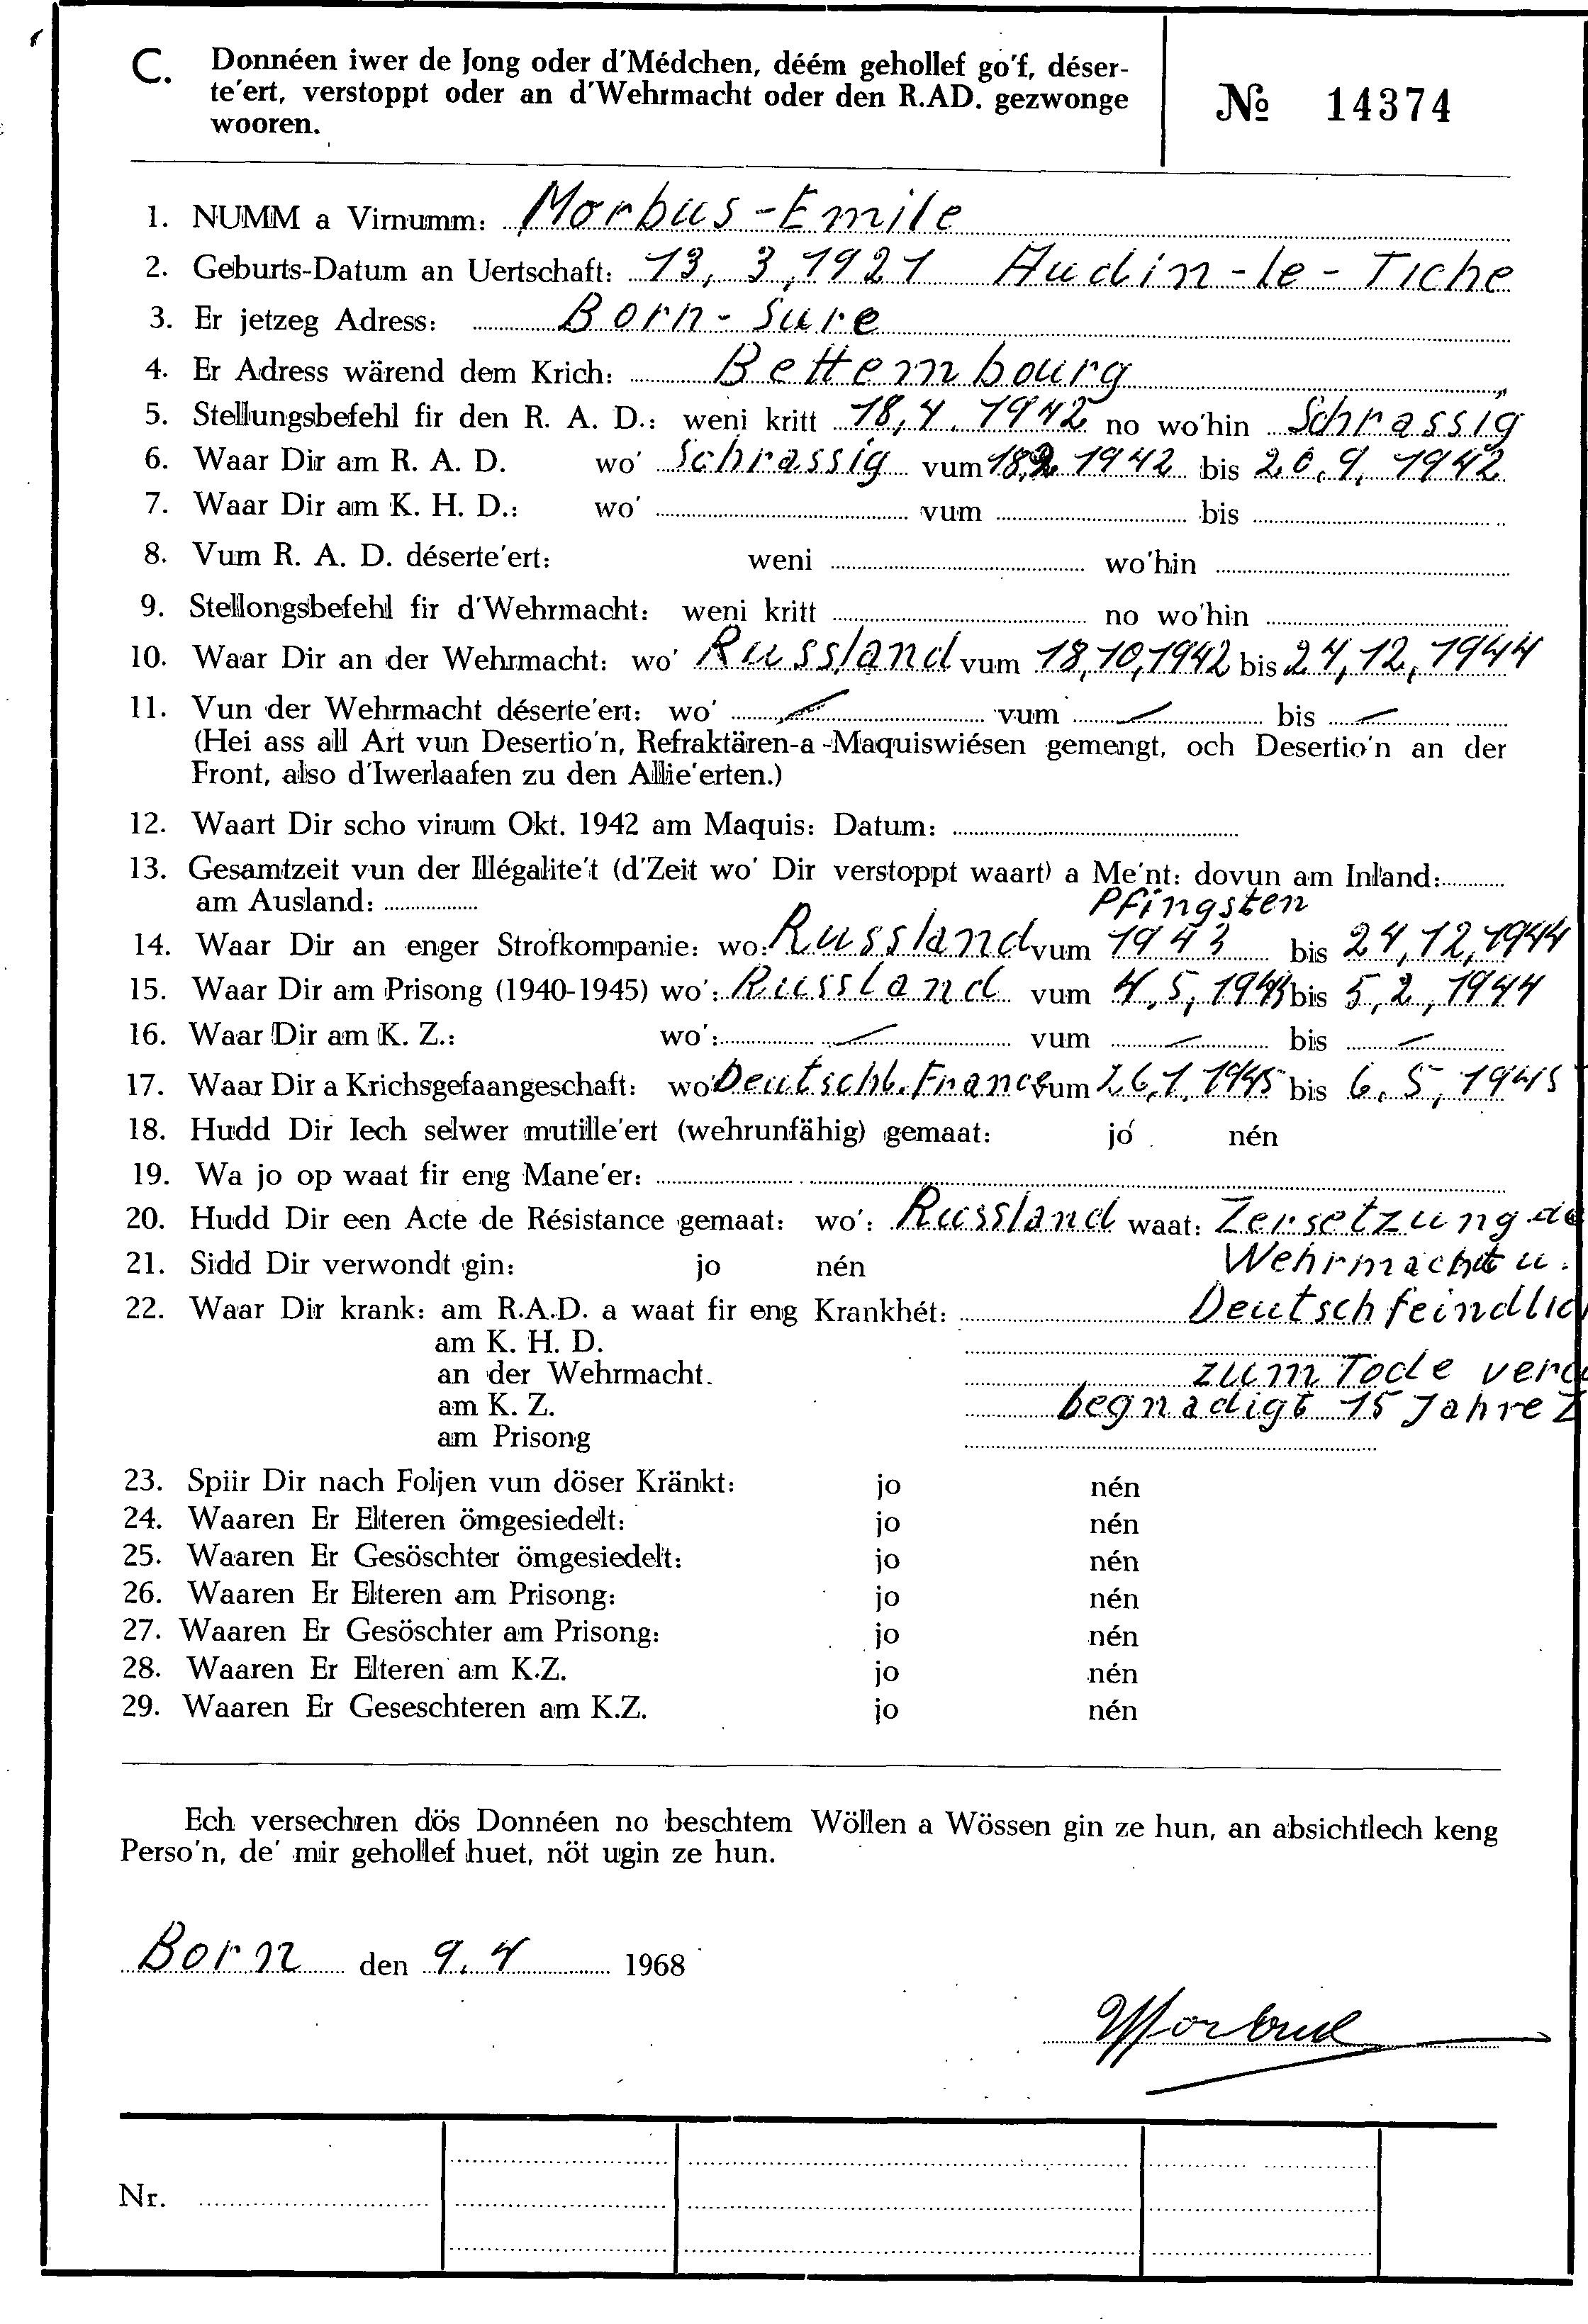 C. Donnéen iwer de Jong oder d'Médchen, déém gehollef go'f, déser-
te'ert, verstoppt oder an d'Wehrmacht oder den R.AD. gezwonge
wooren.
№ 14374
1. NUMM a Virnumm: Morbus-Emile
2. Geburts-Datum an Uertschaft: 13, 3, 1921 Audin-le-Tiche
3. Er jetzeg Adress: Born-Sure
4. Er Adress wärend dem Krich: Bettembourg
5. Stellungsbefehl fir den R. A. D.: weni kritt 18,4. 1942 no wo'hin Schrassig
6. Waar Dir am R. A. D. wo' Schrassig vum 18, 1942 bis 20,9, 1942
7. Waar Dir am K. H. D.: wo' vum bis
8. Vum R. A. D. déserte'ert: weni wo'hin
9. Stellongsbefehl fir d'Wehrmacht: weni kritt no wo'hin
10. Waar Dir an der Wehrmacht: wo' Russland vum 18,10,1942 bis 24,12,1944
11. Vun der Wehrmacht déserte'ert: wo' — vum — bis —
(Hei ass all Art vun Desertio'n, Refraktären-a-Maquiswiésen gemengt, och Desertio'n an der
Front, also d'Iwerlaafen zu den Allie'erten.)
12. Waart Dir scho virum Okt. 1942 am Maquis: Datum:
13. Gesamtzeit vun der Illégalite't (d'Zeit wo' Dir verstoppt waart) a Me'nt: dovun am Inland:
am Ausland: Pfingsten
14. Waar Dir an enger Strofkompanie: wo: Russland vum 1943 bis 24,12,1944
15. Waar Dir am Prisong (1940-1945) wo': Russland vum 4,5, 1943 bis 5,2, 1944
16. Waar Dir am K. Z.: wo': — vum — bis —
17. Waar Dir a Krichsgefaangeschaft: wo' Deutschl. France vum 26,1, 1945 bis 6, 5, 1945
18. Hudd Dir Iech selwer mutille'ert (wehrunfähig) gemaat: jo nén
19. Wa jo op waat fir eng Mane'er:
20. Hudd Dir een Acte de Résistance gemaat: wo': Russland waat: Zersetzung de
21. Sidd Dir verwondt gin: jo nén Wehrmacht u.
22. Waar Dir krank: am R.A.D. a waat fir eng Krankhét: Deutschfeindlich
am K. H. D.
an der Wehrmacht. zum Tode veru
am K. Z. begnadigt 15 Jahre Z
am Prisong
23. Spiir Dir nach Foljen vun döser Kränkt: jo nén
24. Waaren Er Elteren ömgesiedelt: jo nén
25. Waaren Er Gesöschter ömgesiedelt: jo nén
26. Waaren Er Elteren am Prisong: jo nén
27. Waaren Er Gesöschter am Prisong: jo nén
28. Waaren Er Elteren am K.Z. jo nén
29. Waaren Er Geseschteren am K.Z. jo nén
Ech versechren dös Donnéen no beschtem Wöllen a Wössen gin ze hun, an absichtlech keng
Perso'n, de' mir gehollef huet, nöt ugin ze hun.
Born den 9. 4 1968
Morbus
Nr.